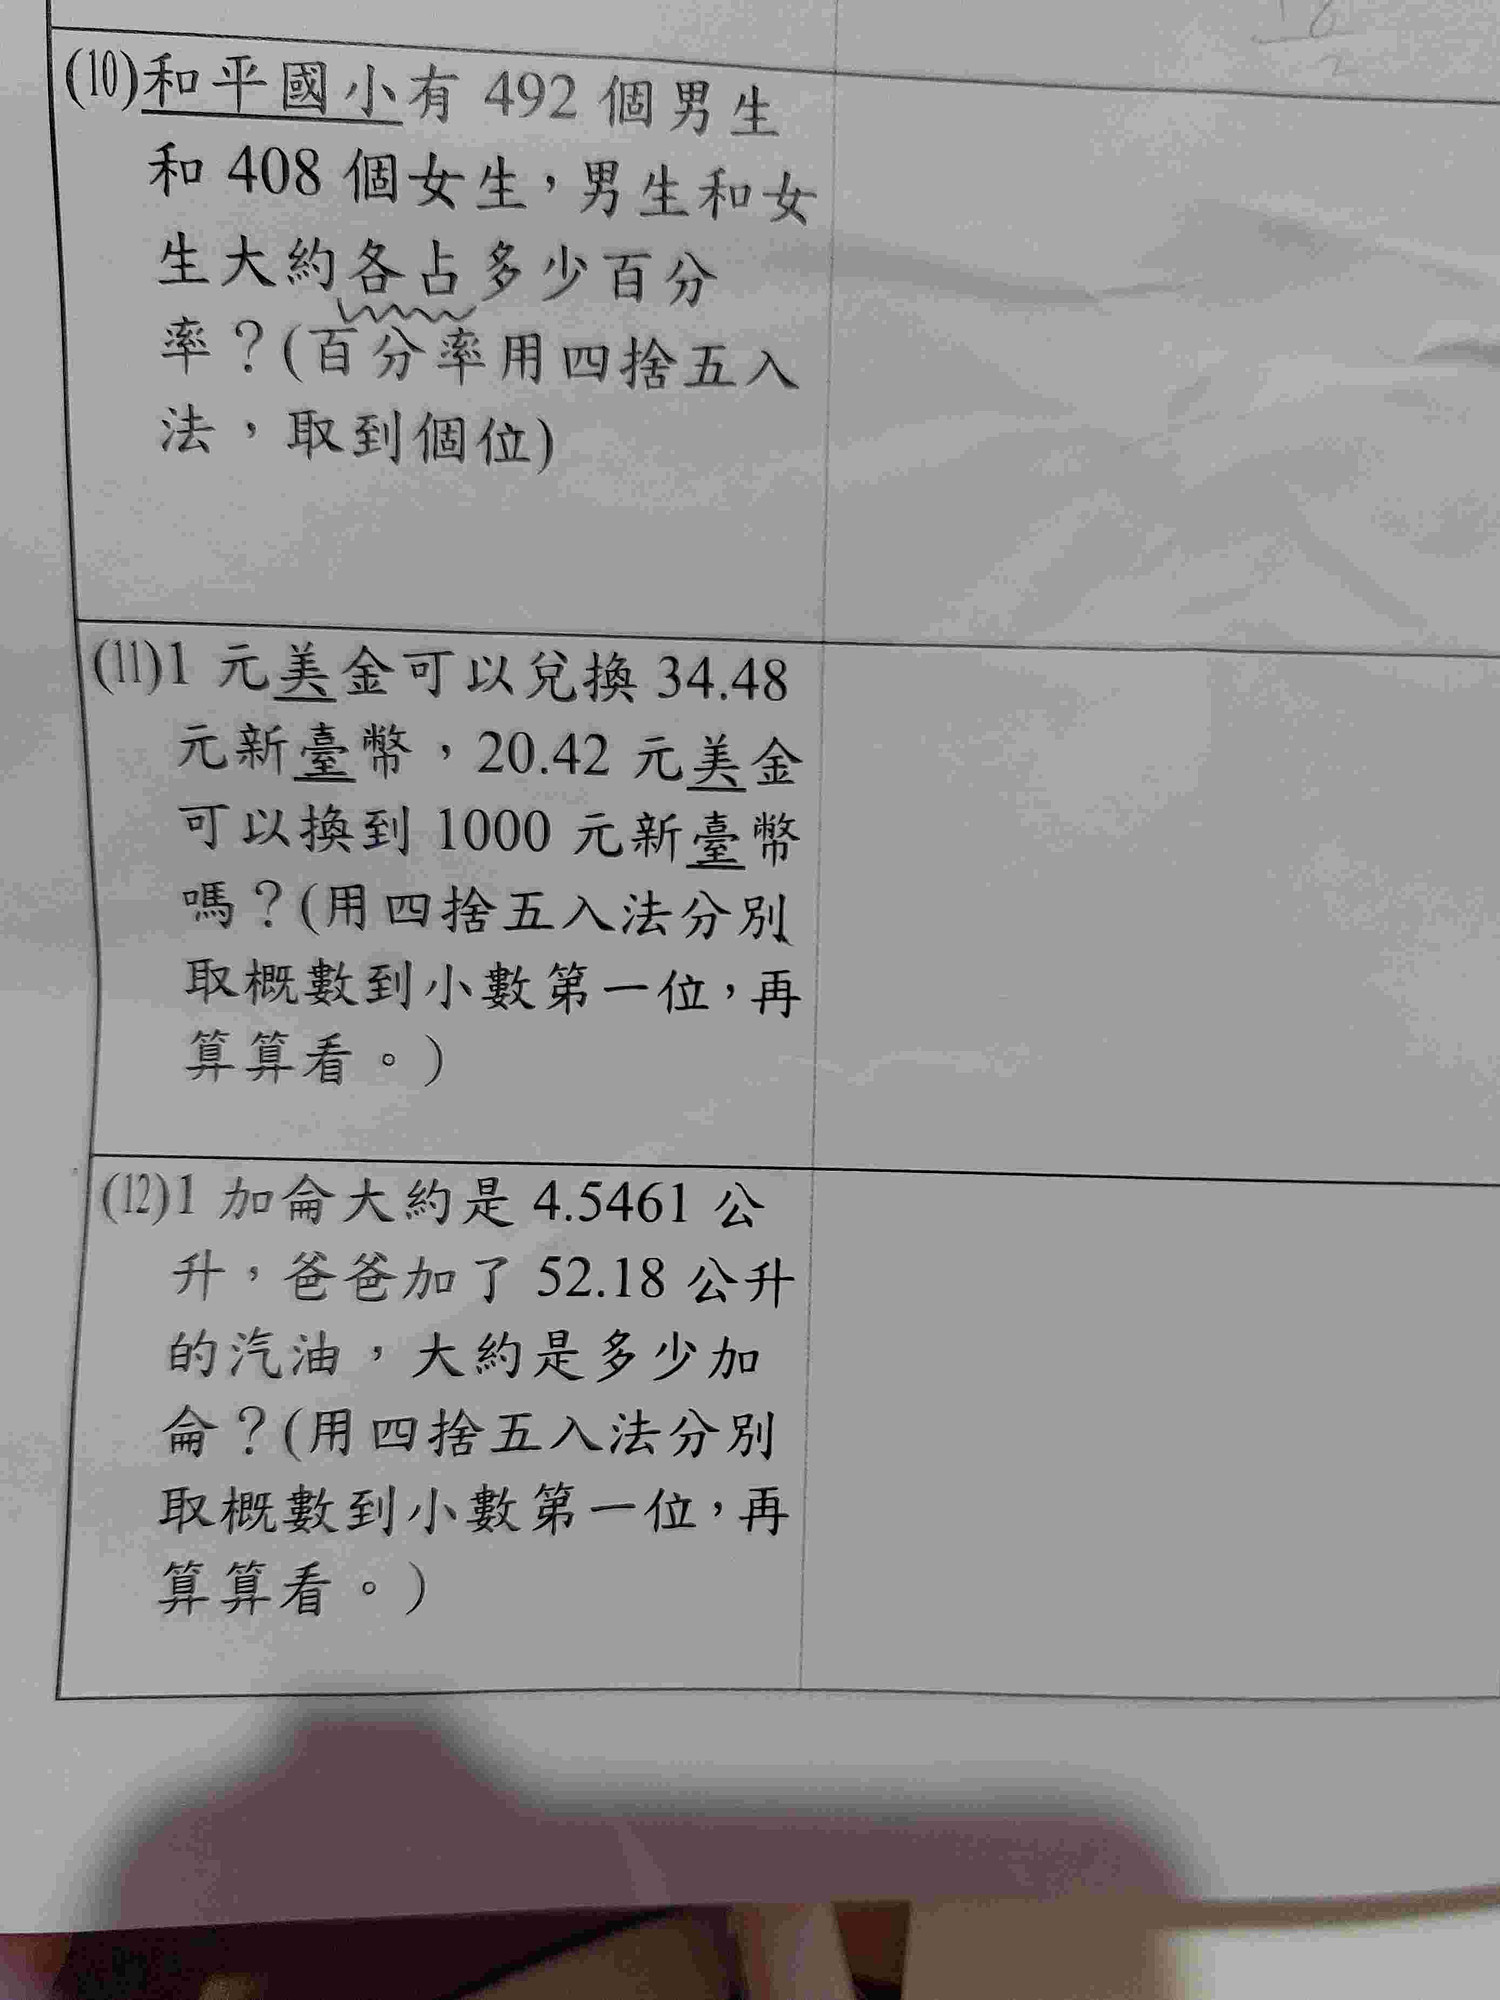 (10)和平國小有 492 個男生
和 408 個女生，男生和女
生大約各占多少百分
率？(百分率用四捨五入
法，取到個位)
(11)1 元美金可以兌換 34.48
元新臺幣，20.42 元美金
可以換到 1000 元新臺幣
嗎？(用四捨五入法分別
取概數到小數第一位，再
算算看。)
(12)1 加侖大約是 4.5461 公
升，爸爸加了 52.18 公升
的汽油，大約是多少加
侖？(用四捨五入法分別
取概數到小數第一位，再
算算看。)